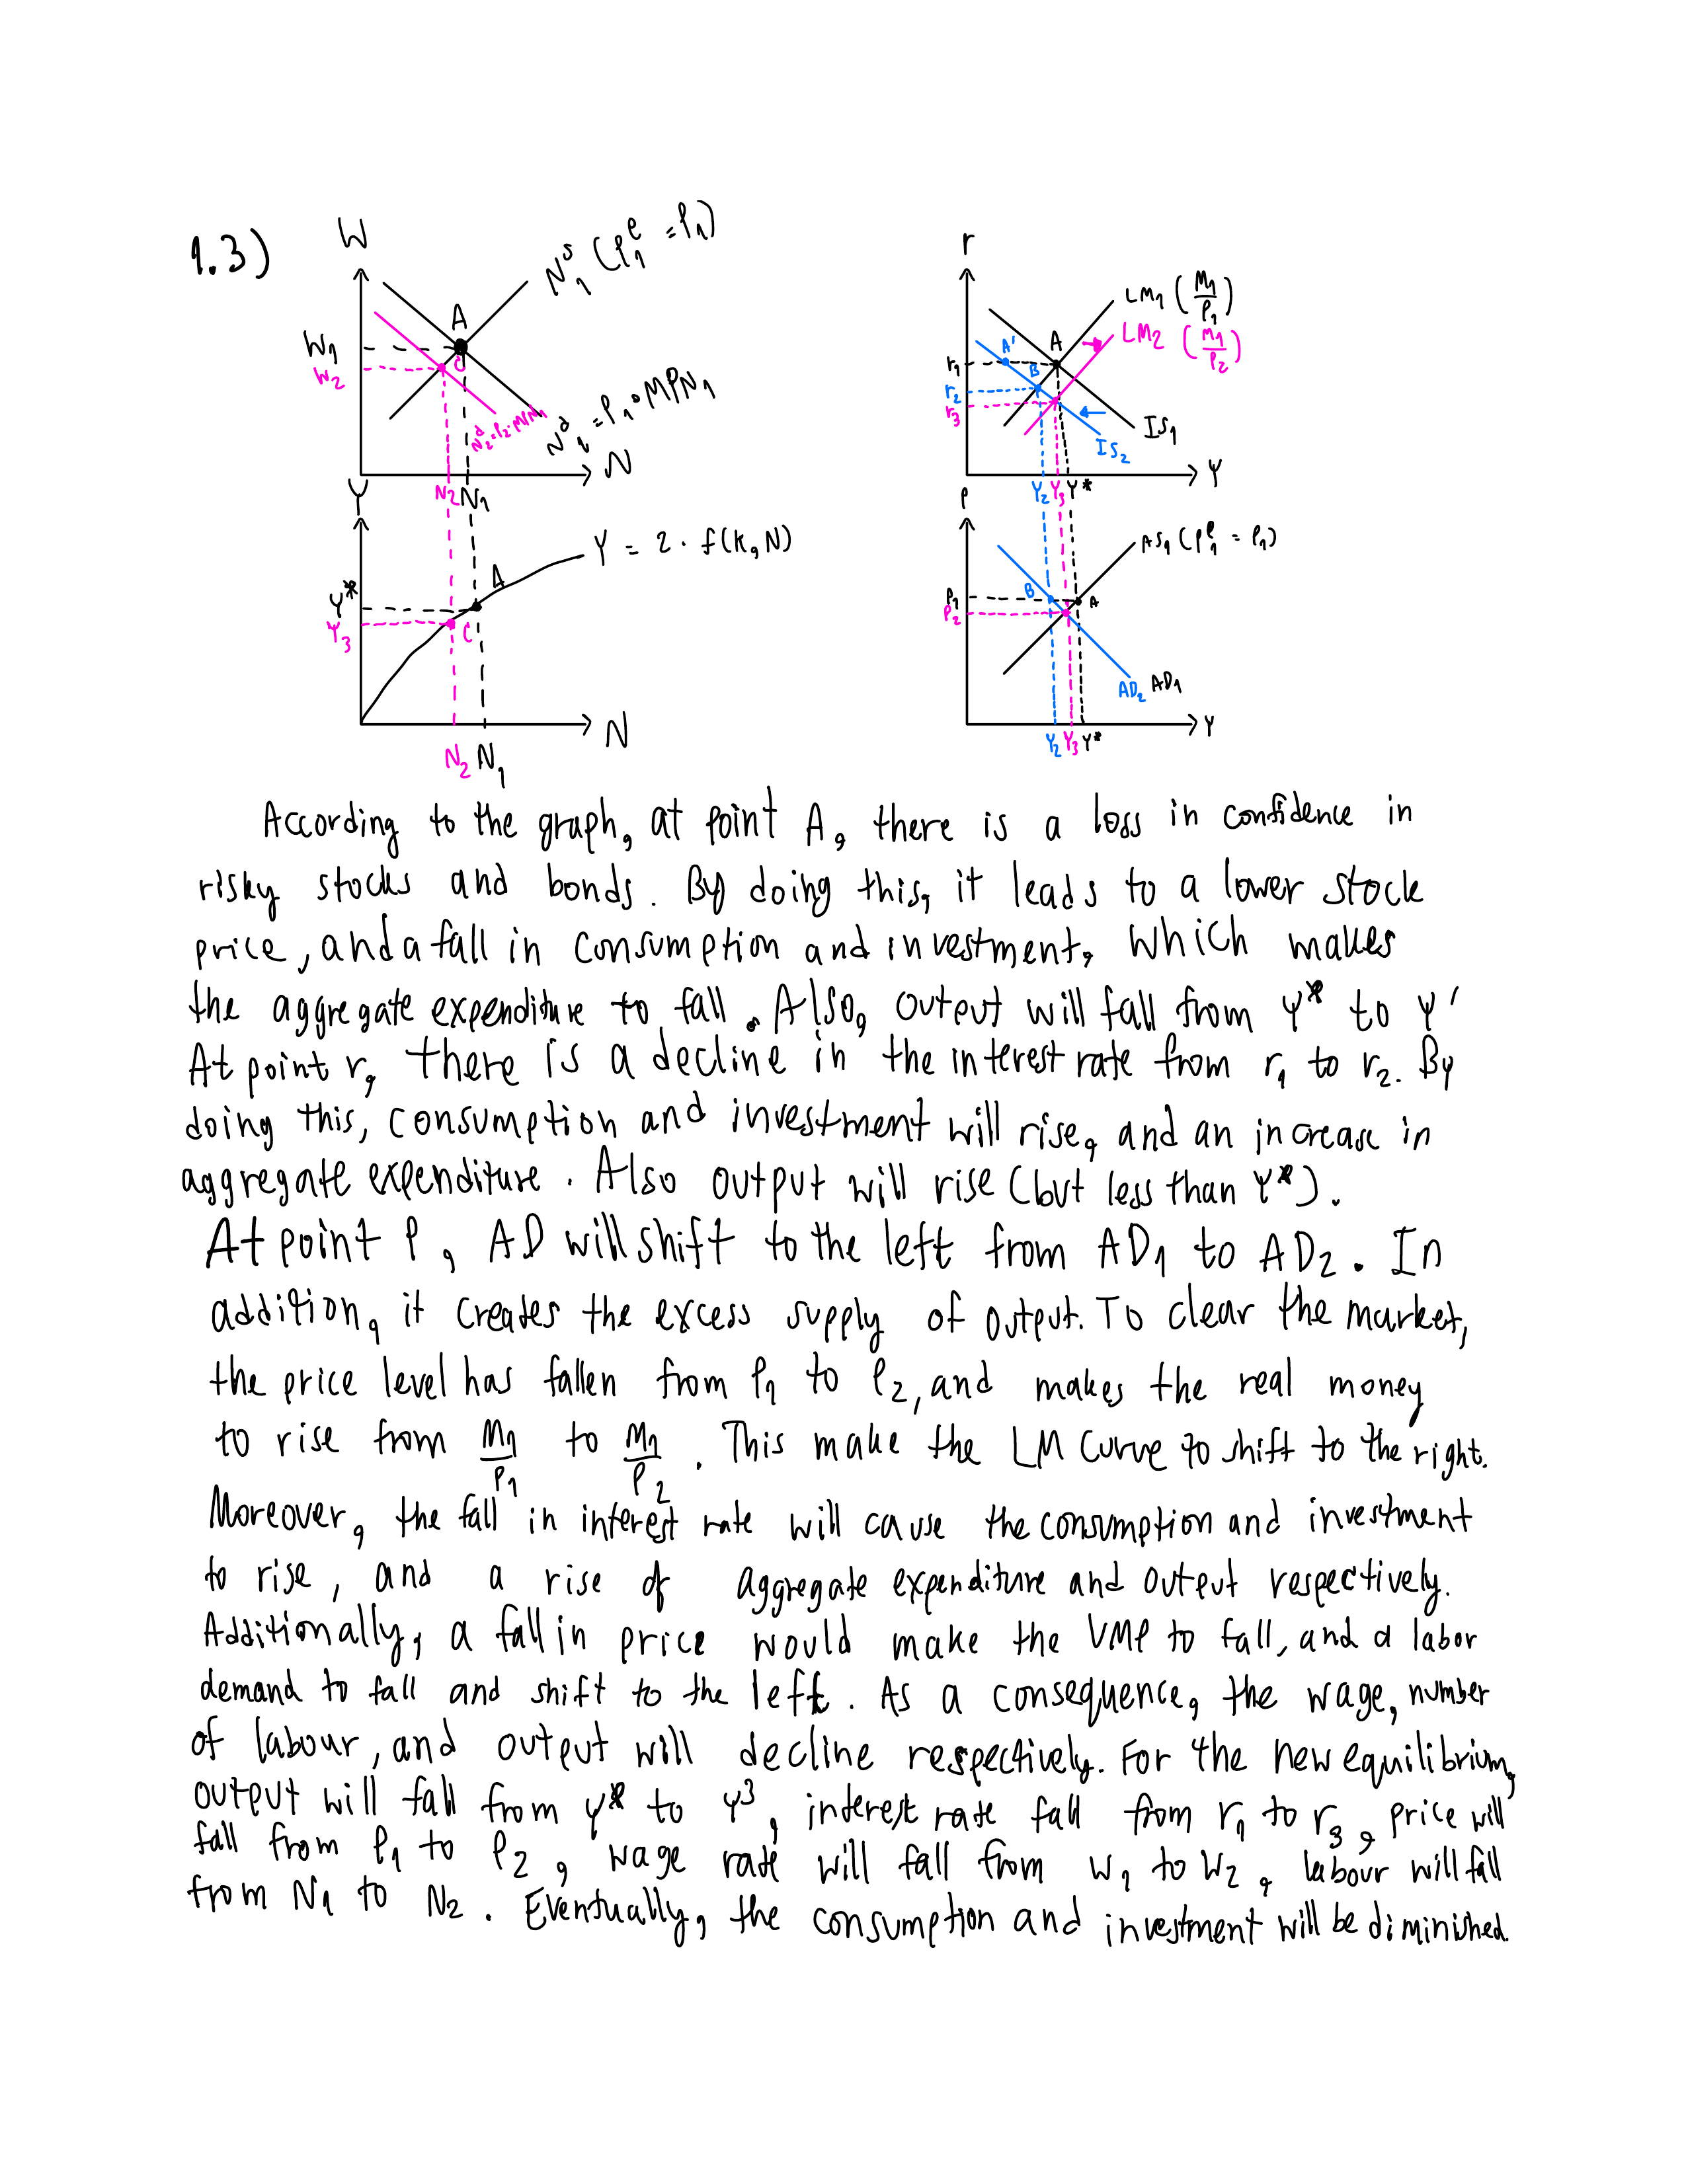 1.3)
W
N₁ˢ (P₁ᵉ = P₁)
A
W₁
W₂
C
N₂ᵈ = P₂·MPN₁
N₁ᵈ = P₁·MPN₁
N
N₂ N₁
Y
Y = z · f(K, N)
A
Y*
Y₃
C
N
N₂ N₁
r
LM₁ (M₁/P₁)
LM₂ (M₁/P₂)
A' A
r₁
B
r₂
r₃
IS₁
IS₂
Y₂ Y₃ Y* Y
P
AS₁ (P₁ᵉ = P₁)
B
P₁ A
P₂
AD₂ AD₁
Y₂ Y₃ Y* Y
According to the graph, at point A, there is a loss in confidence in
risky stocks and bonds. By doing this, it leads to a lower stock
price, and a fall in consumption and investment, which makes
the aggregate expenditure to fall. Also, output will fall from Y* to Y'
At point r, there is a decline in the interest rate from r₁ to r₂. By
doing this, consumption and investment will rise, and an increase in
aggregate expenditure. Also output will rise (but less than Y*).
At point P, AD will shift to the left from AD₁ to AD₂. In
addition, it creates the excess supply of output. To clear the market,
the price level has fallen from P₁ to P₂, and makes the real money
to rise from M₁/P₁ to M₁/P₂. This make the LM curve to shift to the right.
Moreover, the fall in interest rate will cause the consumption and investment
to rise, and a rise of aggregate expenditure and output respectively.
Additionally, a fall in price would make the VMP to fall, and a labor
demand to fall and shift to the left. As a consequence, the wage, number
of labour, and output will decline respectively. For the new equilibrium,
output will fall from Y* to Y³, interest rate fall from r₁ to r₃, price will
fall from P₁ to P₂, wage rate will fall from W₁ to W₂, labour will fall
from N₁ to N₂. Eventually, the consumption and investment will be diminished.